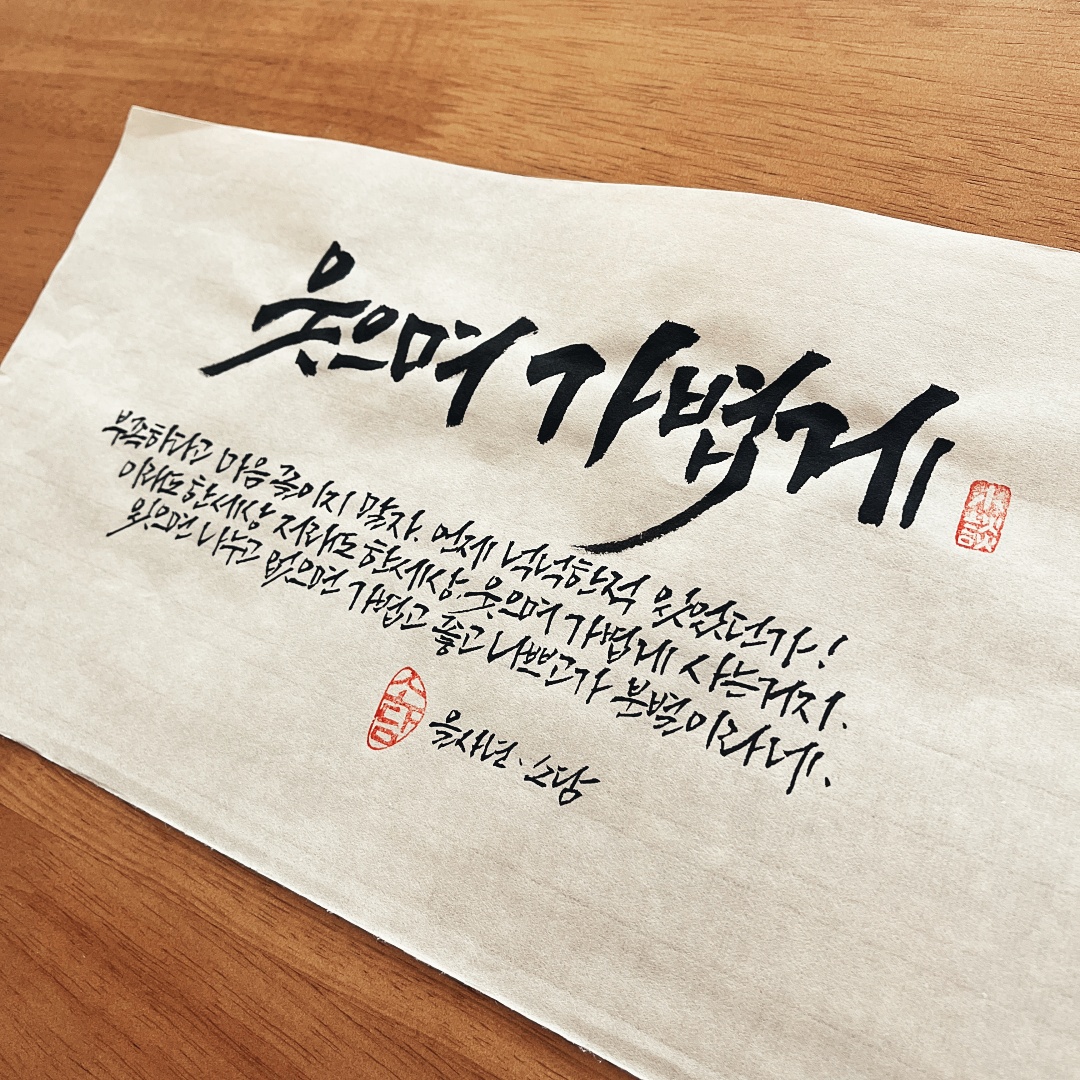 웃으며 가볍게
부족하다고 마음 죽이지 말자. 언제 넉넉한적 있었던가!
이래도 한세상 저래도 한세상 웃으며 가볍게 사는거지.
있으면 나누고 없으면 가볍고 좋고 나쁘고가 분별이라네.
소담
을사년. 소담